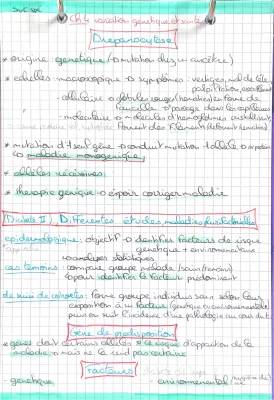 SVT spé
Ch 4 variation génétique et santé
Drépanocytose
* origine génétique (mutation chez un ancêtre)
* échelles macroscopique → symptômes : vertiges, mal de tête,
palpitation
- cellulaire → globules rouges (hématies) en forme de
faucille → passage dans les capillaires
- moléculaire → molécules d'hémoglobines
forment des filaments (déforment hématies)
* mutation d'1 seul gène → mutation 1 allèle
→ maladie monogénique
* allèles récessives
* thérapie génique → espoir corriger maladie
Diabète II Différentes études maladies
épidémiologique : objectif → identifier facteurs de risque
génétique + environnementaux
→ analyses statistiques
cas témoins : compare groupe malade / sain (témoin)
→ pour identifier le facteur prédominant
de suivi de cohortes : forme groupe individus sain selon leur
exposition à un facteur (génétique ou environnemental)
puis on suit l'incidence d'une pathologie au cours du t
Gène de prédisposition
* gènes dont certains allèles ↗ le risque d'apparition de la
maladie → mais ne la rend pas certaine
Facteurs
- génétique
- environnemental